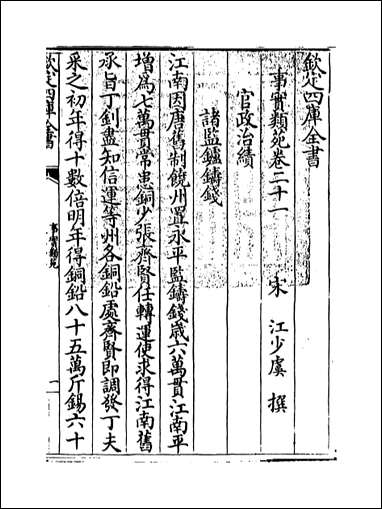 欽定四庫全書
事實類苑卷二十一
宋 江少虞 撰
官政治績
諸監鑪鑄錢
江南因唐舊制饒州置永平監鑄錢歳六萬貫江南平
增為七萬貫常患銅少張齊賢任轉運使求得江南舊
承旨丁釗盡知信運等州各銅鉛處齊賢即調發丁夫
采之初年得十數倍明年得銅鉛八十五萬斤錫六十
欽定四庫全書
事實類苑
一